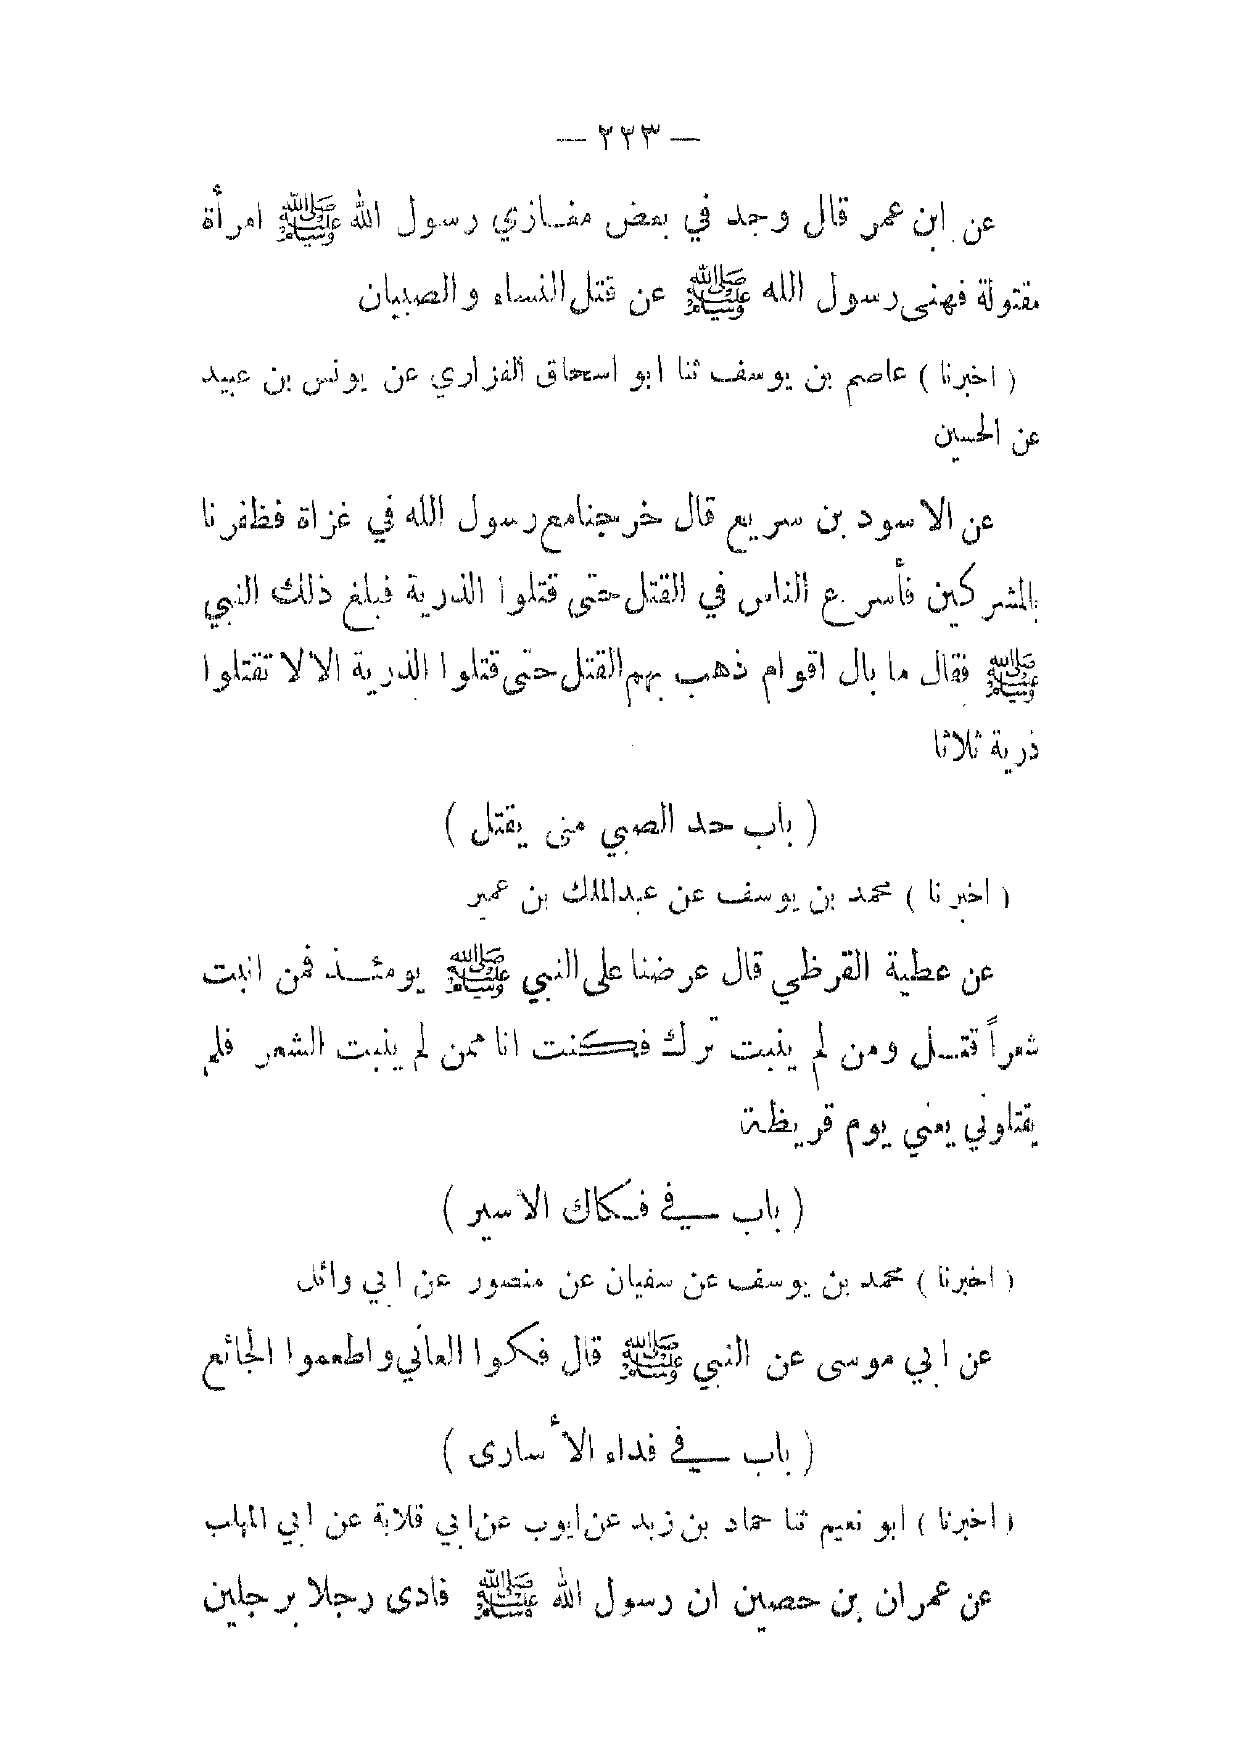 — ٢٢٣ —
عن ابن عمر قال وجد في بعض مغازي رسول الله ﷺ امرأة
مقتولة فهنى رسول الله ﷺ عن قتل النساء والصبيان
( اخبرنا ) عاصم بن يوسف ثنا ابو اسحاق الفزاري عن يونس بن عبيد
عن الحسين
عن الاسود بن سريع قال خرجنا مع رسول الله في غزاة فظفرنا
بالمشركين فأسرع الناس في القتل حتى قتلوا الذرية فبلغ ذلك النبي
ﷺ فقال ما بال اقوام ذهب بهم القتل حتى قتلوا الذرية الا لا تقتلوا
ذرية ثلاثا
( باب حد الصبي متى يقتل )
( اخبرنا ) محمد بن يوسف عن عبدالملك بن عمير
عن عطية القرظي قال عرضنا على النبي ﷺ يومئـــذ فمن انبت
شعراً قتـــل ومن لم ينبت ترك فكنت انا ممن لم ينبت الشعر فلم
يقتلوني يعني يوم قريظة
( باب في فكاك الاسير )
( اخبرنا ) محمد بن يوسف عن سفيان عن منصور عن ابي وائل
عن ابي موسى عن النبي ﷺ قال فكوا العاني واطعموا الجائع
( باب في فداء الأسارى )
( اخبرنا ) ابو نعيم ثنا حماد بن زيد عن ايوب عن ابي قلابة عن ابي المهلب
عن عمران بن حصين ان رسول الله ﷺ فادى رجلا برجلين